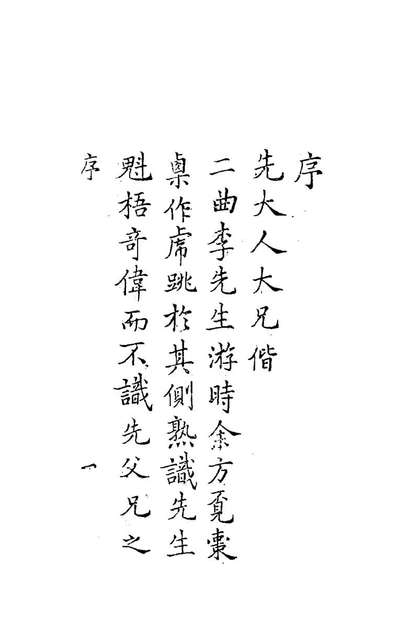 序
先大人大兄偕
二曲李先生游時余方覔棗
㮚作虎跳於其側熟識先生
魁梧竒偉而不識先父兄之
序 一